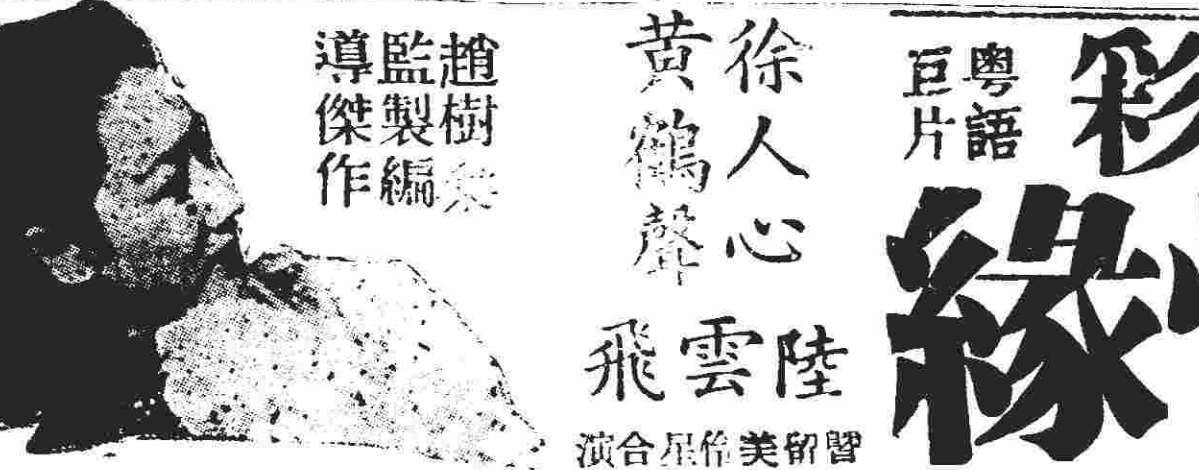 彩
緣
粵語
巨片
徐人心
黃鶴聲
陸雲飛
留美伶星合演
趙樹燊
監製編
導傑作